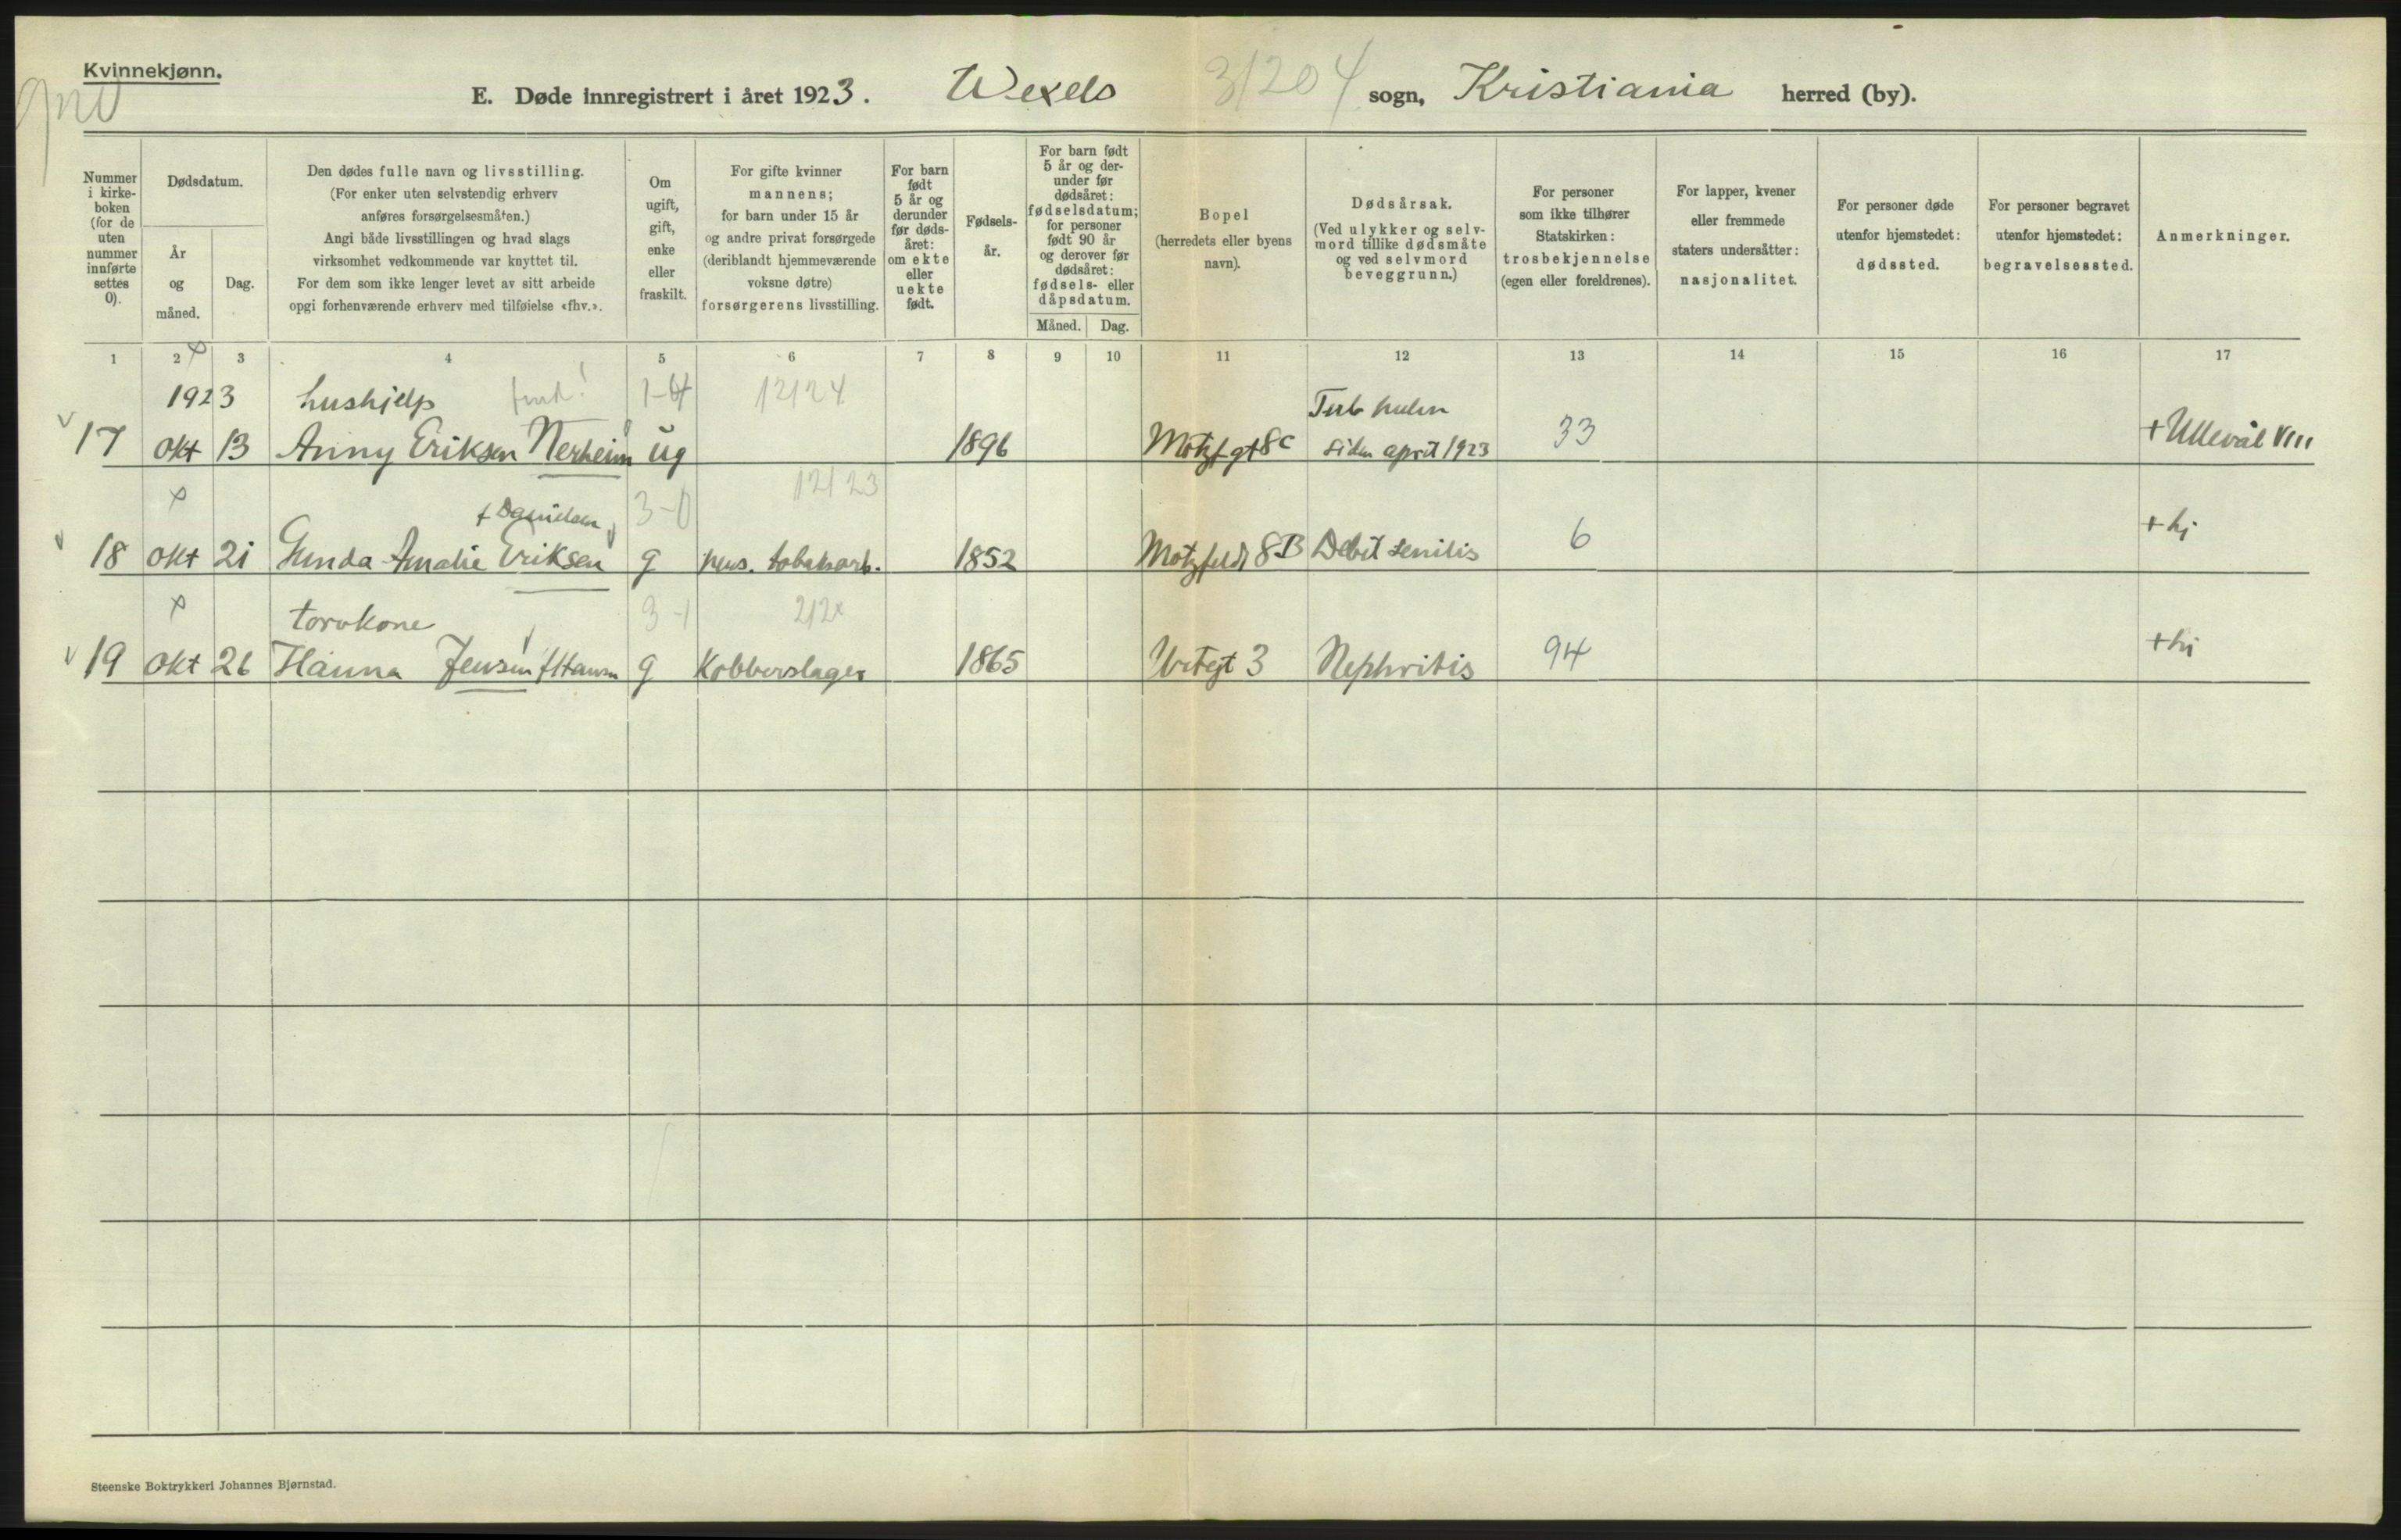 Kvinnekjønn.
E. Døde innregistrert i året 1923. Wexels 31204 sogn, Kristiania herred (by).
Nummer i kirkeboken (for de uten nummer innførte settes 0).
Dødsdatum.
År og måned.
Dag.
Den dødes fulle navn og livsstilling.
(For enker uten selvstendig erhverv
anføres forsørgelsesmåten.)
Angi både livsstillingen og hvad slags
virksomhet vedkommende var knyttet til.
For dem som ikke lenger levet av sitt arbeide
opgi forhenværende erhverv med tilføielse «fhv.».
Om ugift, gift, enke eller fraskilt.
For gifte kvinner
mannens;
for barn under 15 år
og andre privat forsørgede
(deriblandt hjemmeværende
voksne døtre)
forsørgerens livsstilling.
For barn født 5 år og derunder før dødsåret: om ekte eller uekte født.
Fødselsår.
For barn født 5 år og derunder før dødsåret: fødselsdatum; for personer født 90 år og derover før dødsåret: fødsels- eller dåpsdatum.
Måned. Dag.
Bopel
(herredets eller byens
navn).
Dødsårsak.
(Ved ulykker og selvmord tillike dødsmåte og ved selvmord beveggrunn.)
For personer
som ikke tilhører
Statskirken:
trosbekjennelse
(egen eller foreldrenes).
For lapper, kvener
eller fremmede
staters undersåtter:
nasjonalitet.
For personer døde
utenfor hjemstedet:
dødssted.
For personer begravet
utenfor hjemstedet:
begravelsessted.
Anmerkninger.
1 2 3 4 5 6 7 8 9 10 11 12 13 14 15 16 17
1923 hushjelp 12124 Tub pulm
17 okt 13 Anny Eriksen Nerheim ug 1896 Motzf gt 8c siden april 1923 33 + Ullevål VIII
f Danielsen 3-0 12123
18 okt 21 Gunda Amalie Eriksen g pens. tobaksarb. 1852 Motzfeldt 8B Debil senilis 6 + hj
torvkone 3-1 212x
19 okt 26 Hanna Jensen f Hansen g Kobberslager 1865 Urtegt 3 Nephritis 94 + hj
Steenske Boktrykkeri Johannes Bjørnstad.